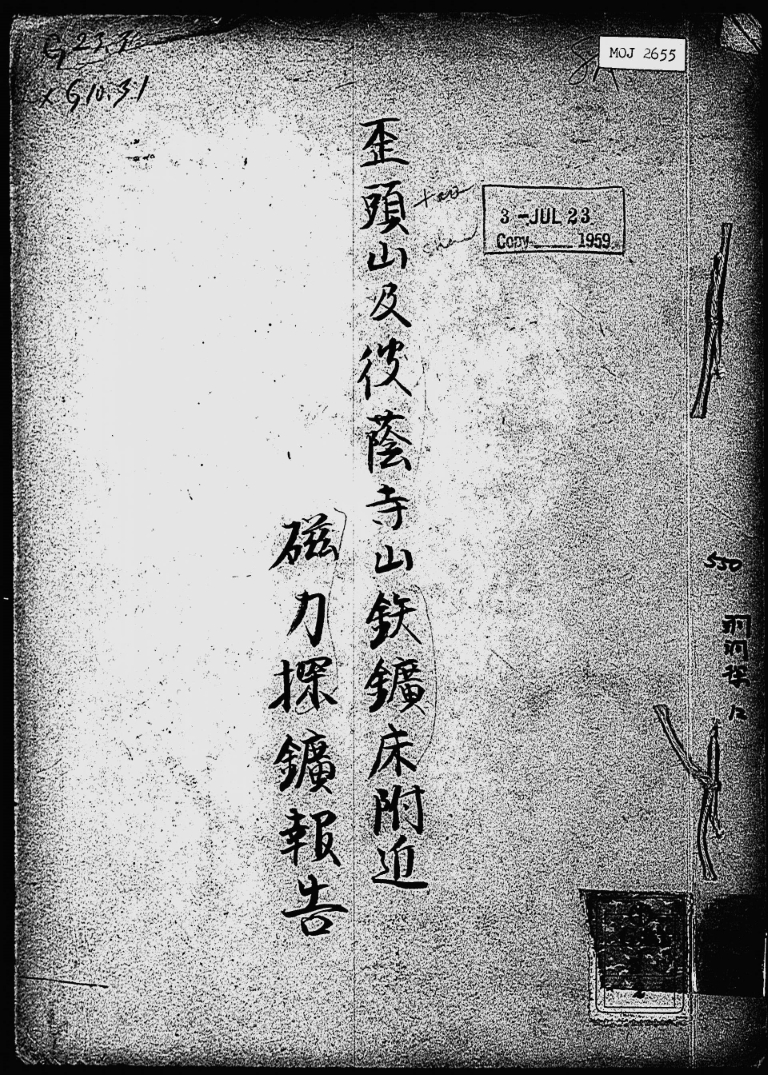 G 23.
x G10.3.1
MOJ 2655
3 -JUL 23
Copy 1959
歪頭山及後蔭寺山鉄鑛床附近
磁力探鑛報告
550